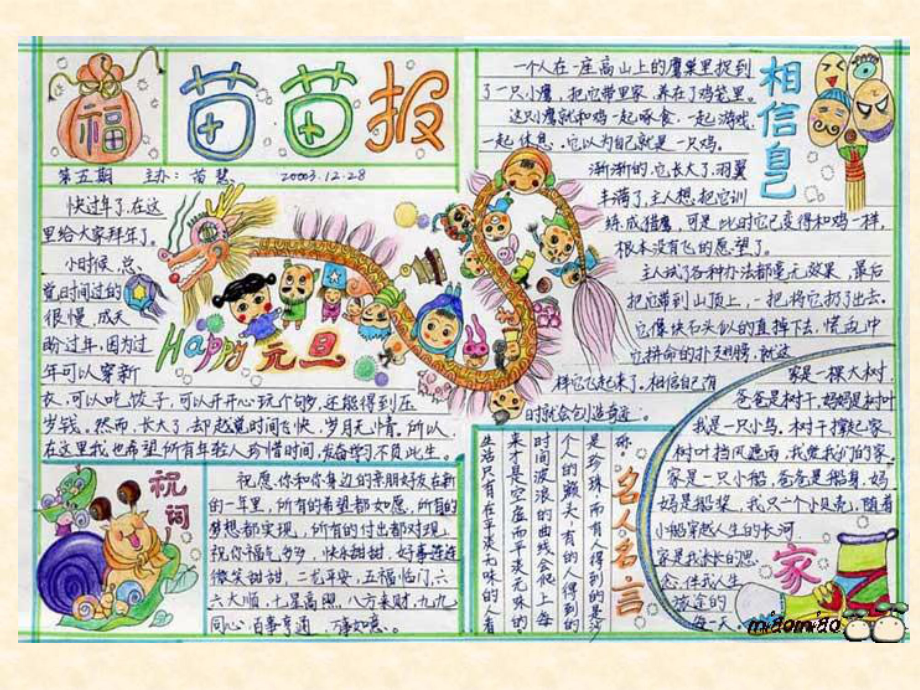 福
苗苗报
第五期 主办：苗慧 20003.12.28
快过年了，在这
里给大家拜年了。
小时候，总
觉时间过的
很慢，成天
盼过年，因为过
年可以穿新
衣，可以吃饺子，可以开开心玩个够，还能得到压
岁钱。然而，长大了，却越觉时间飞快，岁月无情。所以
在这里我也希望所有年轻人珍惜时间，发奋学习不负此生。
Happy 元旦
相信自己
一个人在一座高山上的鹰巢里捉到
了一只小鹰，把它带里家，养在了鸡笼里。
这只小鹰就和鸡一起啄食，一起游戏，
一起休息。它以为自己就是一只鸡。
渐渐的，它长大了，羽翼
丰满了，主人想把它训
练成猎鹰，可是此时它已变得和鸡一样，
根本没有飞的愿望了。
主人试了各种办法都毫无效果，最后
把它带到山顶上，一把将它扔了出去。
它像块石头似的直掉下去，慌乱中
它拼命的扑翅膀，就这
样它飞起来了。相信自己有
时就会创造奇迹。
祝词
祝愿：你和你身边的亲朋好友在新
的一年里，所有的希望都如愿，所有的
梦想都实现，所有的付出都对现。
祝你福气多多，快乐甜甜，好事连连
微笑甜甜，二龙平安，五福临门，六
六大顺，七星高照，八方来财，九九
同心，百事亨通，万事如意。
名人名言
你，
是珍珠，而有人得到的是沙
个人的额头，有的人得到的
时间波浪的曲线会爬上每
来才是空虚而平淡无味的。
生活只有在平淡无味的人看
家
家是一棵大树，
爸爸是树干，妈妈是树叶
我是一只小鸟。树干撑起家
树叶挡风遮雨，我爱我们的家。
家是一只小船，爸爸是船身，妈
妈是船桨，我只一个小贝壳，随着
小船穿越人生的长河
家是我成长的思
念，伴我人生
旅途的
每一天。
miaomiao